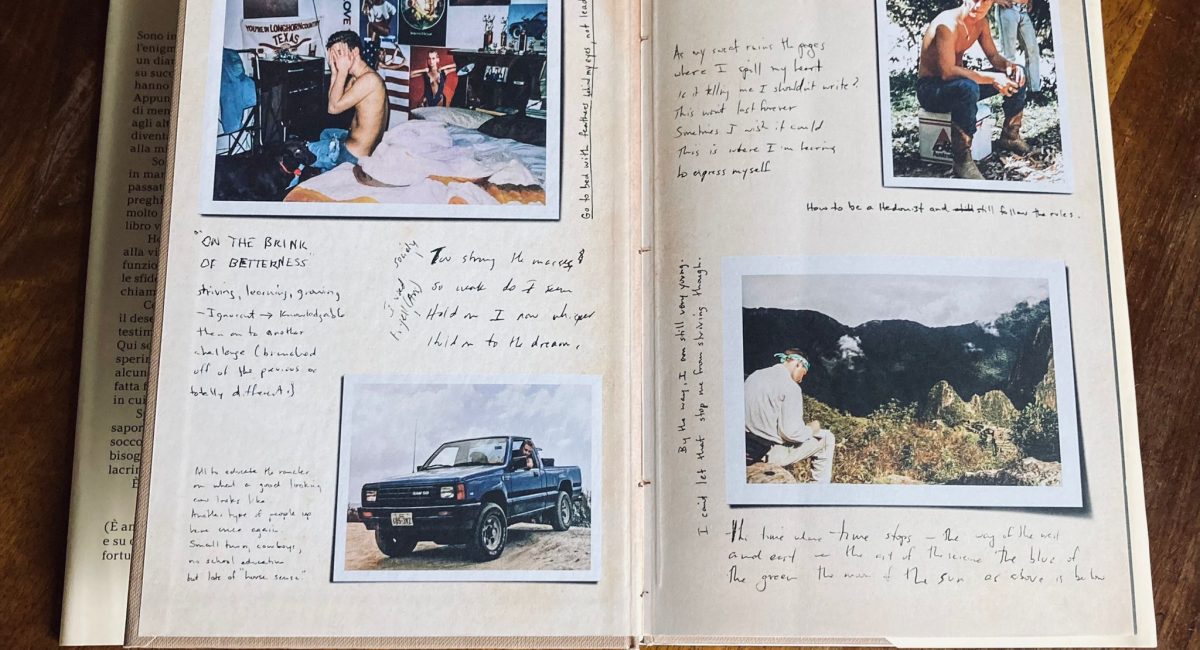 Sono in
l'enigm
un dian
su succ
hanno
Appun
di men
agli alt
diventa
alla mi
So
in mar
passat
preghi
molto
libro v
He
alla vi
funzio
le sfide
chiam
Co
il dese
testim
Qui so
sperin
alcun
fatta f
in cui
S
sapon
socco
bisog
lacrin
È
(È an
e su c
fortu
YOU'RE IN LONGHORN COUNTRY
TEXAS
LOVE
Go to bed with feathers behind my eyes, not lead
"ON THE BRINK
OF BETTERNESS"
striving, learning, growing
- Ignorant → Knowledgable
then on to another
challenge (branched
off of the previous or
totally different.)
Too strong the
so weak do I seem
Hold on I now whisper
Hold on to the dream.
to educate the rancher
on what a good looking
cow looks like
Another type of people up
here once again.
Small town, cowboys,
no school education
but lots of "horse sense."
As my sweat ruins the pages
where I spill my heart
Is it telling me I shouldn't write?
This wont last forever
Sometimes I wish it could
This is where I'm learning
to express myself
How to be a Hedonist and still follow the rules.
By the way, I am still very young.
I cant let that stop me from striving though.
time where time stops – the way of the west
and east the art of the scene the blue of
the green the moon the sun as above is below